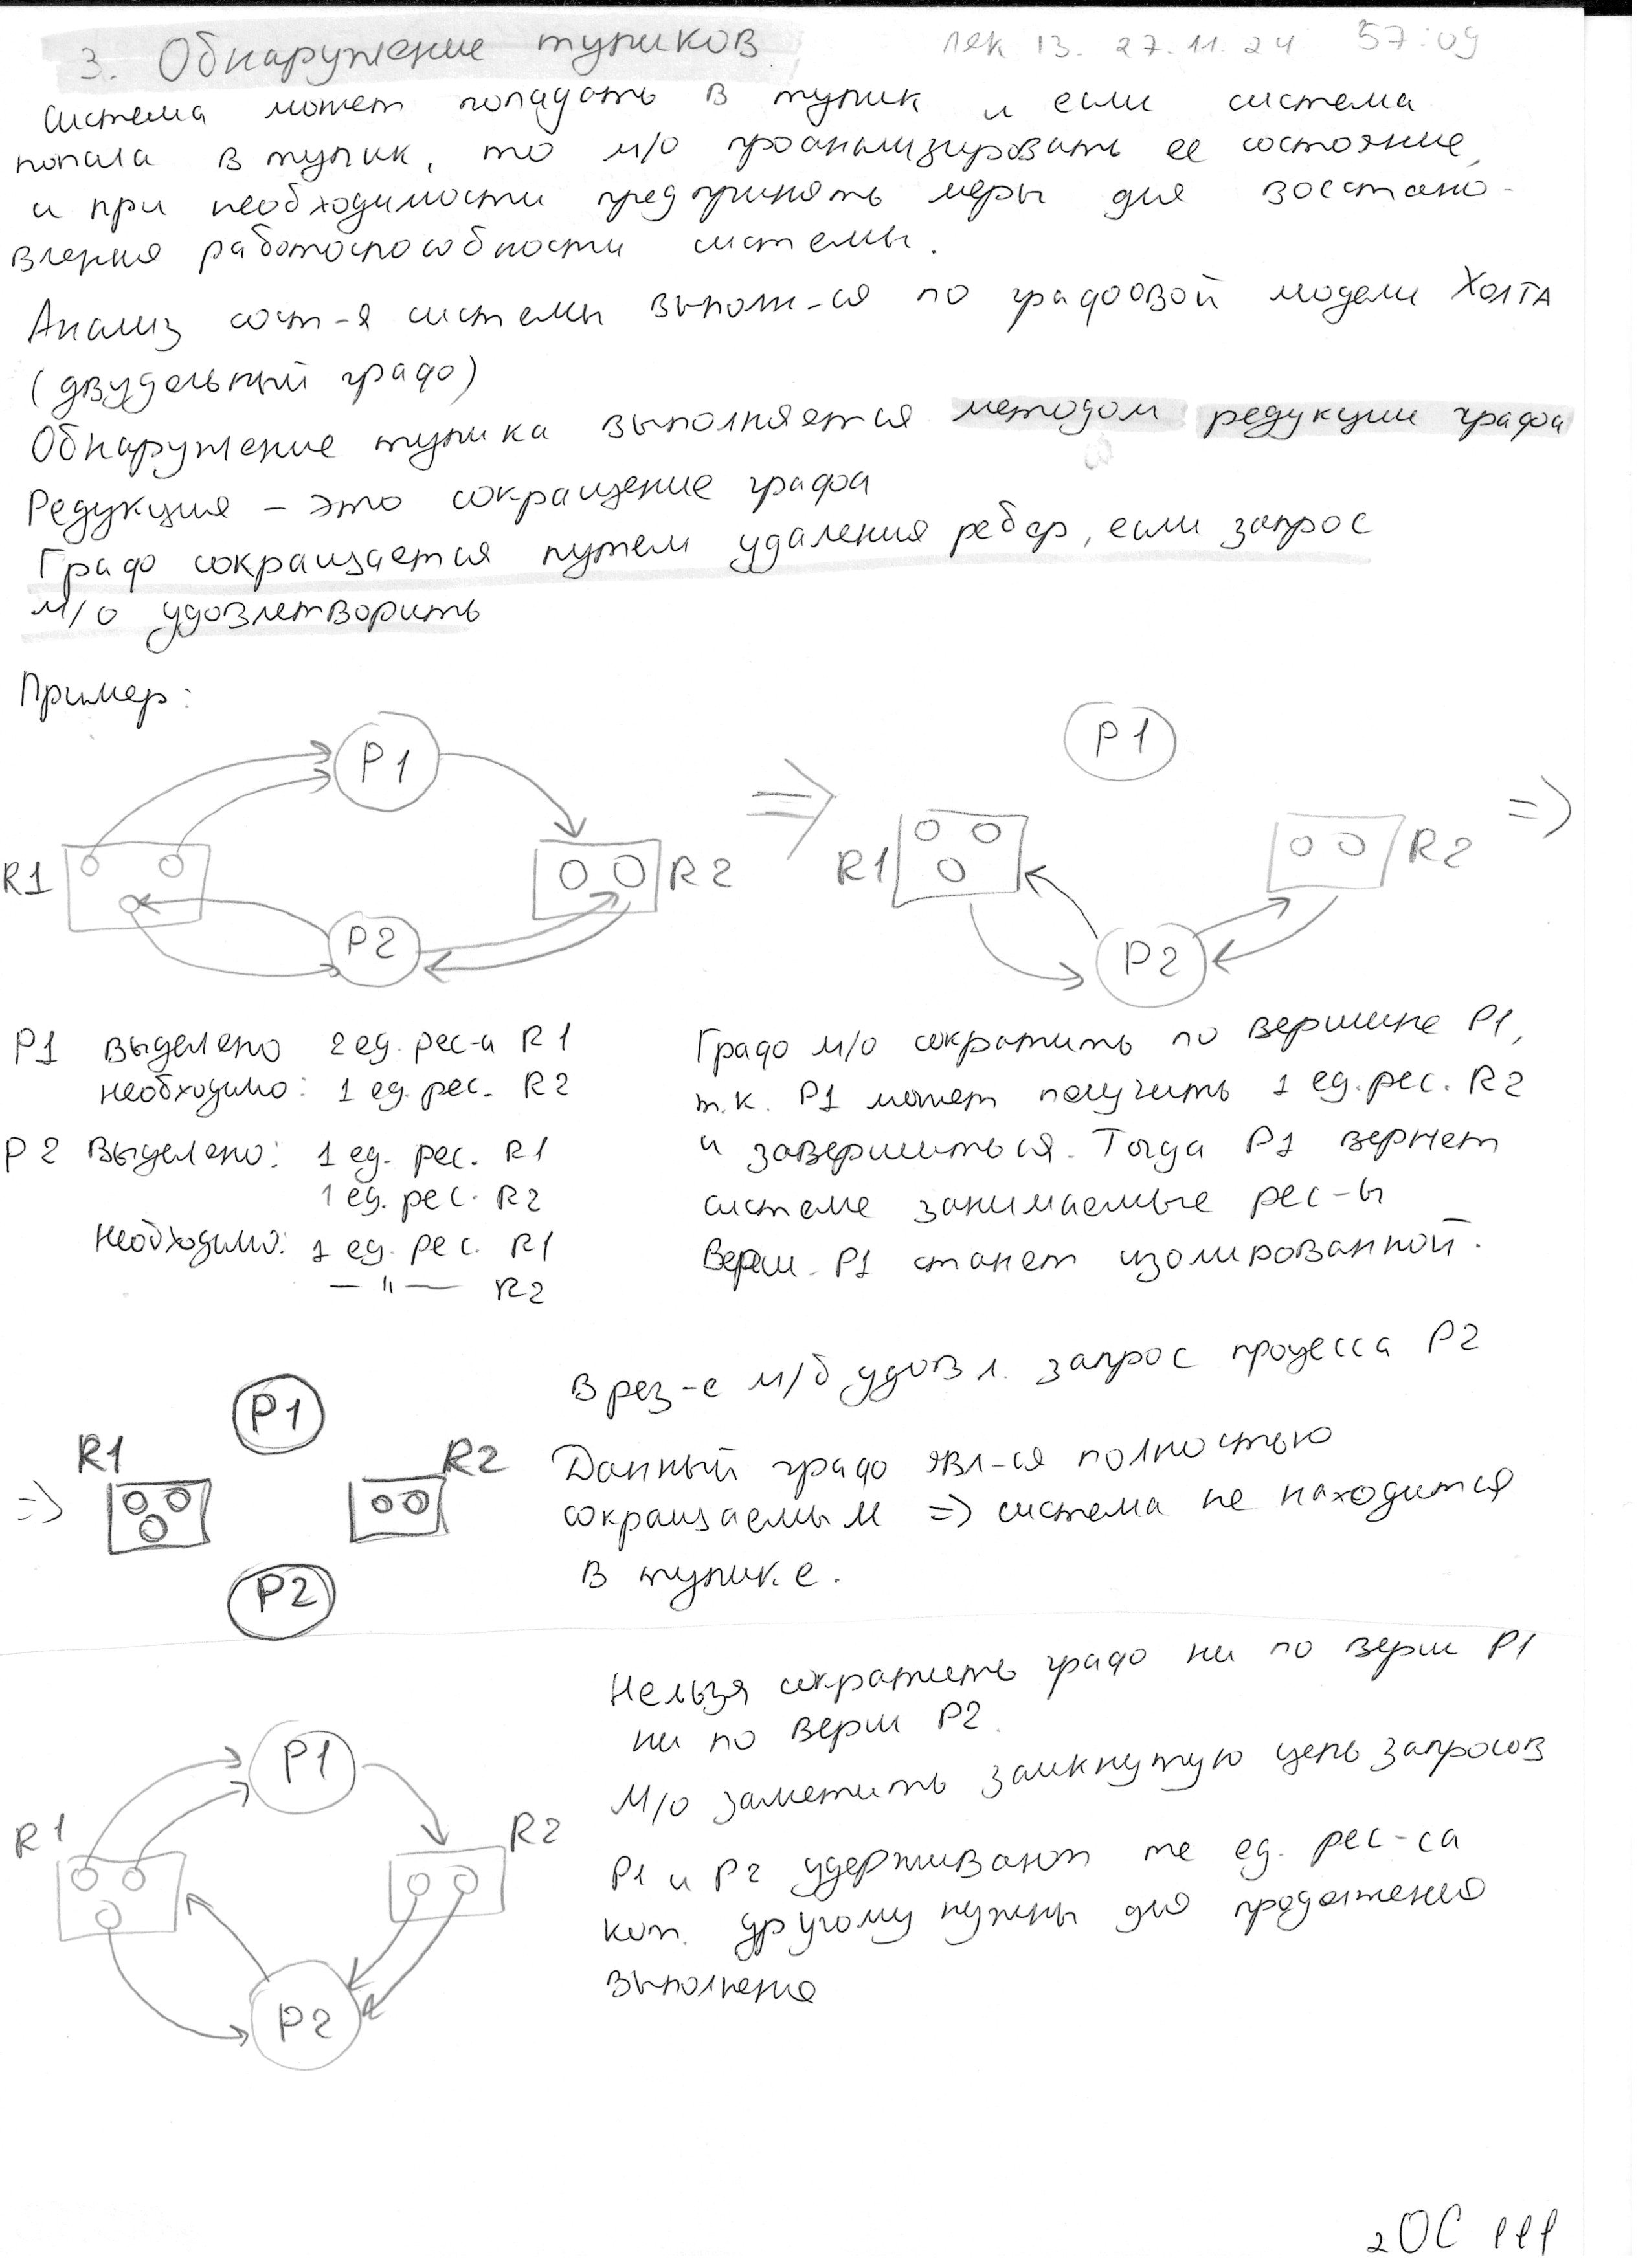 3. Обнаружение тупиков лек 13. 27.11.24 57:09
Система может попадать в тупик и если система
попала в тупик, то м/о проанализировать ее состояние,
и при необходимости предпринять меры для восстано-
вления работоспособности системы.
Анализ сост-я системы выполн-ся по графовой модели Холта
(двудольный граф)
Обнаружение тупика выполняется методом редукции графа
Редукция – это сокращение графа
Граф сокращается путем удаления ребер, если запрос
м/о удовлетворить
Пример:
P1
R1
R2
P2
=>
P1
R1
R2
P2
=>
P1 выделено 2 ед. рес-а R1
необходимо: 1 ед. рес. R2
P2 выделено: 1 ед. рес. R1
1 ед. рес. R2
необходимо: 1 ед. рес. R1
— " — R2
Граф м/о сократить по вершине P1,
т.к. P1 может получить 1 ед. рес. R2
и завершиться. Тогда P1 вернет
системе занимаемые рес-ы
Верш. P1 станет изолированной.
=>
P1
R1
R2
P2
В рез-е м/б удовл. запрос процесса P2
Данный граф явл-ся полностью
сокращаемым => система не находится
в тупике.
P1
R1
R2
P2
Нельзя сократить граф ни по верш P1
ни по верш P2.
М/о заметить замкнутую цепь запросов
P1 и P2 удерживают те ед. рес-са
кот. другому нужны для продолжения
выполнения
2ОС